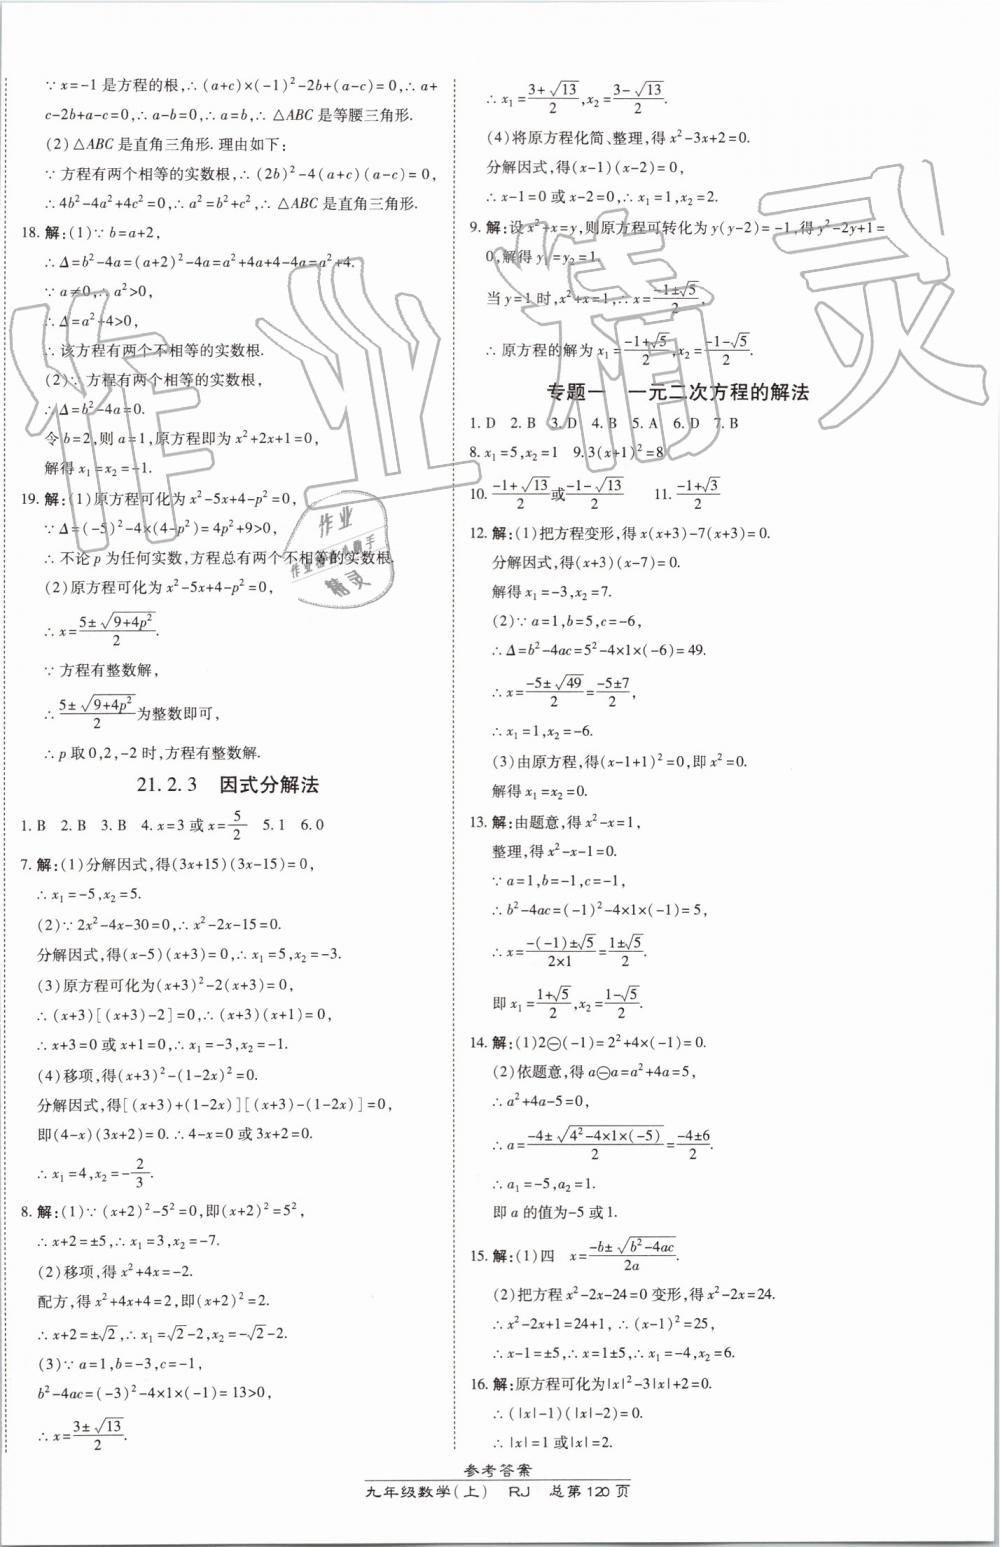 ∵x=-1是方程的根,∴(a+c)×(-1)²-2b+(a-c)=0,∴a+
c-2b+a-c=0,∴a-b=0,∴a=b,∴△ABC是等腰三角形.
(2)△ABC是直角三角形.理由如下:
∵方程有两个相等的实数根,∴(2b)²-4(a+c)(a-c)=0,
∴4b²-4a²+4c²=0,∴a²=b²+c²,∴△ABC是直角三角形.
18.解:(1)∵b=a+2,
∴Δ=b²-4a=(a+2)²-4a=a²+4a+4-4a=a²+4.
∵a≠0,∴a²>0,
∴Δ=a²+4>0,
∴该方程有两个不相等的实数根.
(2)∵方程有两个相等的实数根,
∴Δ=b²-4a=0.
令b=2,则a=1,原方程即为x²+2x+1=0,
解得x₁=x₂=-1.
19.解:(1)原方程可化为x²-5x+4-p²=0,
∵Δ=(-5)²-4×(4-p²)=4p²+9>0,
∴不论p为任何实数,方程总有两个不相等的实数根.
(2)原方程可化为x²-5x+4-p²=0,
∴x=(5±√(9+4p²))/2.
∵方程有整数解,
∴(5±√(9+4p²))/2为整数即可,
∴p取0,2,-2时,方程有整数解.
21.2.3 因式分解法
1.B 2.B 3.B 4.x=3或x=5/2 5.1 6.0
7.解:(1)分解因式,得(3x+15)(3x-15)=0,
∴x₁=-5,x₂=5.
(2)∵2x²-4x-30=0,∴x²-2x-15=0.
分解因式,得(x-5)(x+3)=0,∴x₁=5,x₂=-3.
(3)原方程可化为(x+3)²-2(x+3)=0,
∴(x+3)[(x+3)-2]=0,∴(x+3)(x+1)=0,
∴x+3=0或x+1=0,∴x₁=-3,x₂=-1.
(4)移项,得(x+3)²-(1-2x)²=0.
分解因式,得[(x+3)+(1-2x)][(x+3)-(1-2x)]=0,
即(4-x)(3x+2)=0.∴4-x=0或3x+2=0.
∴x₁=4,x₂=-2/3.
8.解:(1)∵(x+2)²-5²=0,即(x+2)²=5²,
∴x+2=±5,∴x₁=3,x₂=-7.
(2)移项,得x²+4x=-2.
配方,得x²+4x+4=2,即(x+2)²=2.
∴x+2=±√2,∴x₁=√2-2,x₂=-√2-2.
(3)∵a=1,b=-3,c=-1,
b²-4ac=(-3)²-4×1×(-1)=13>0,
∴x=(3±√13)/2.
∴x₁=(3+√13)/2,x₂=(3-√13)/2.
(4)将原方程化简、整理,得x²-3x+2=0.
分解因式,得(x-1)(x-2)=0,
∴x-1=0或x-2=0,∴x₁=1,x₂=2.
9.解:设x²+x=y,则原方程可转化为y(y-2)=-1,得y²-2y+1=
0,解得y₁=y₂=1.
当y=1时,x²+x=1,∴x=(-1±√5)/2.
∴原方程的解为x₁=(-1+√5)/2,x₂=(-1-√5)/2.
专题一 一元二次方程的解法
1.D 2.B 3.D 4.B 5.A 6.D 7.B
8.x₁=5,x₂=1 9.3(x+1)²=8
10.(-1+√13)/2或(-1-√13)/2 11.(-1+√3)/2
12.解:(1)把方程变形,得x(x+3)-7(x+3)=0.
分解因式,得(x+3)(x-7)=0.
解得x₁=-3,x₂=7.
(2)∵a=1,b=5,c=-6,
∴Δ=b²-4ac=5²-4×1×(-6)=49.
∴x=(-5±√49)/2=(-5±7)/2,
∴x₁=1,x₂=-6.
(3)由原方程,得(x-1+1)²=0,即x²=0.
解得x₁=x₂=0.
13.解:由题意,得x²-x=1,
整理,得x²-x-1=0.
∵a=1,b=-1,c=-1,
∴b²-4ac=(-1)²-4×1×(-1)=5,
∴x=(-(-1)±√5)/(2×1)=(1±√5)/2.
即x₁=(1+√5)/2,x₂=(1-√5)/2.
14.解:(1)2⊖(-1)=2²+4×(-1)=0.
(2)依题意,得a⊖a=a²+4a=5,
∴a²+4a-5=0,
∴a=(-4±√(4²-4×1×(-5)))/2=(-4±6)/2.
∴a₁=-5,a₂=1.
即a的值为-5或1.
15.解:(1)四 x=(-b±√(b²-4ac))/2a.
(2)把方程x²-2x-24=0变形,得x²-2x=24.
∴x²-2x+1=24+1,∴(x-1)²=25,
∴x-1=±5,∴x=1±5,∴x₁=-4,x₂=6.
16.解:原方程可化为|x|²-3|x|+2=0.
∴(|x|-1)(|x|-2)=0.
∴|x|=1或|x|=2.
参考答案
九年级数学(上) RJ 总第120页
作业精灵
作业
精灵